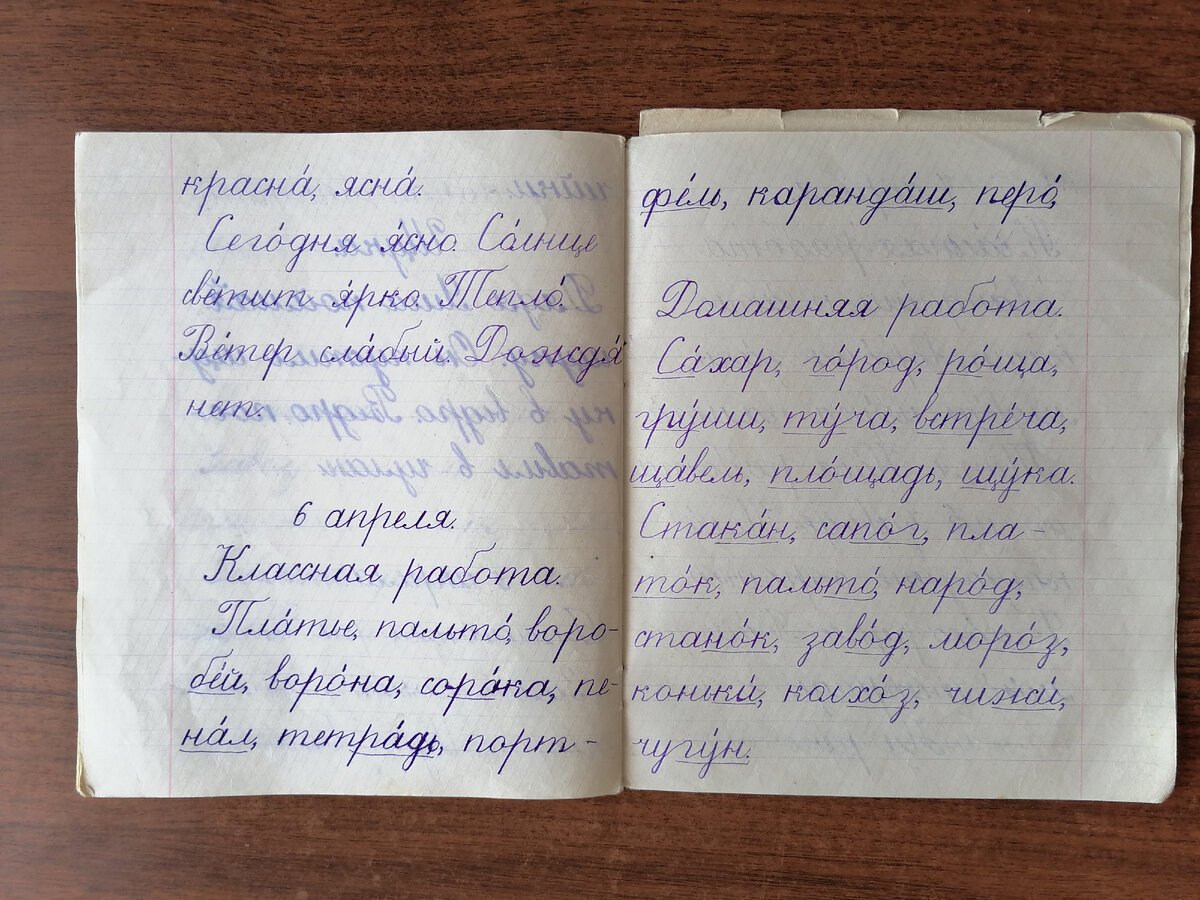 красна́, ясна́.
Сего́дня я́сно. Со́лнце
све́тит я́рко. Тепло́.
Ве́тер сла́бый. Дождя́
нет.
6 апреля.
Классная работа.
Пла́тье, пальто́, воро-
бе́й, воро́на, соро́ка, пе-
на́л, тетра́дь, порт-
фе́ль, каранда́ш, перо́,
Домашняя работа.
Са́хар, го́род, ро́ща,
гру́ши, ту́ча, встре́ча,
ща́вель, пло́щадь, щу́ка.
Стака́н, сапо́г, пла-
то́к, пальто́, наро́д,
стано́к, заво́д, моро́з,
коньки́, колхо́з, чижи́,
чугу́н.